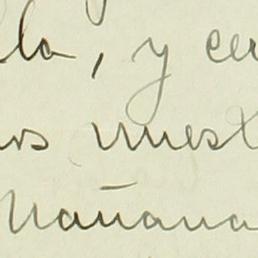 la, y cer
os nuest
Mañana